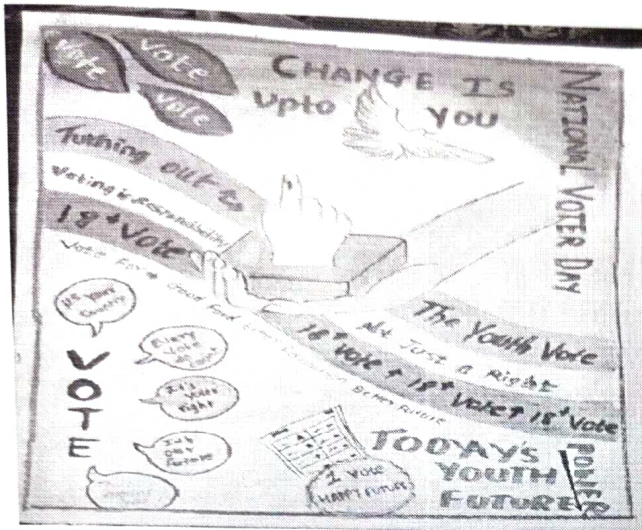 Vote
Vote
Vote
CHANGE IS
Upto YOU
NATIONAL VOTER DAY
Turning out to
Voting is Responsibility
18+ Vote
Vote For A Good
Better Future
The Youth Vote
Not Just a Right
18+ Vote + 18+ Vote + 18+ Vote
VOTE
Every
Vote
It's Your
Right
Ink
Our
Future
I VOTE
HAPPY FUTURE
TODAY'S
YOUTH
FUTURE
POWER